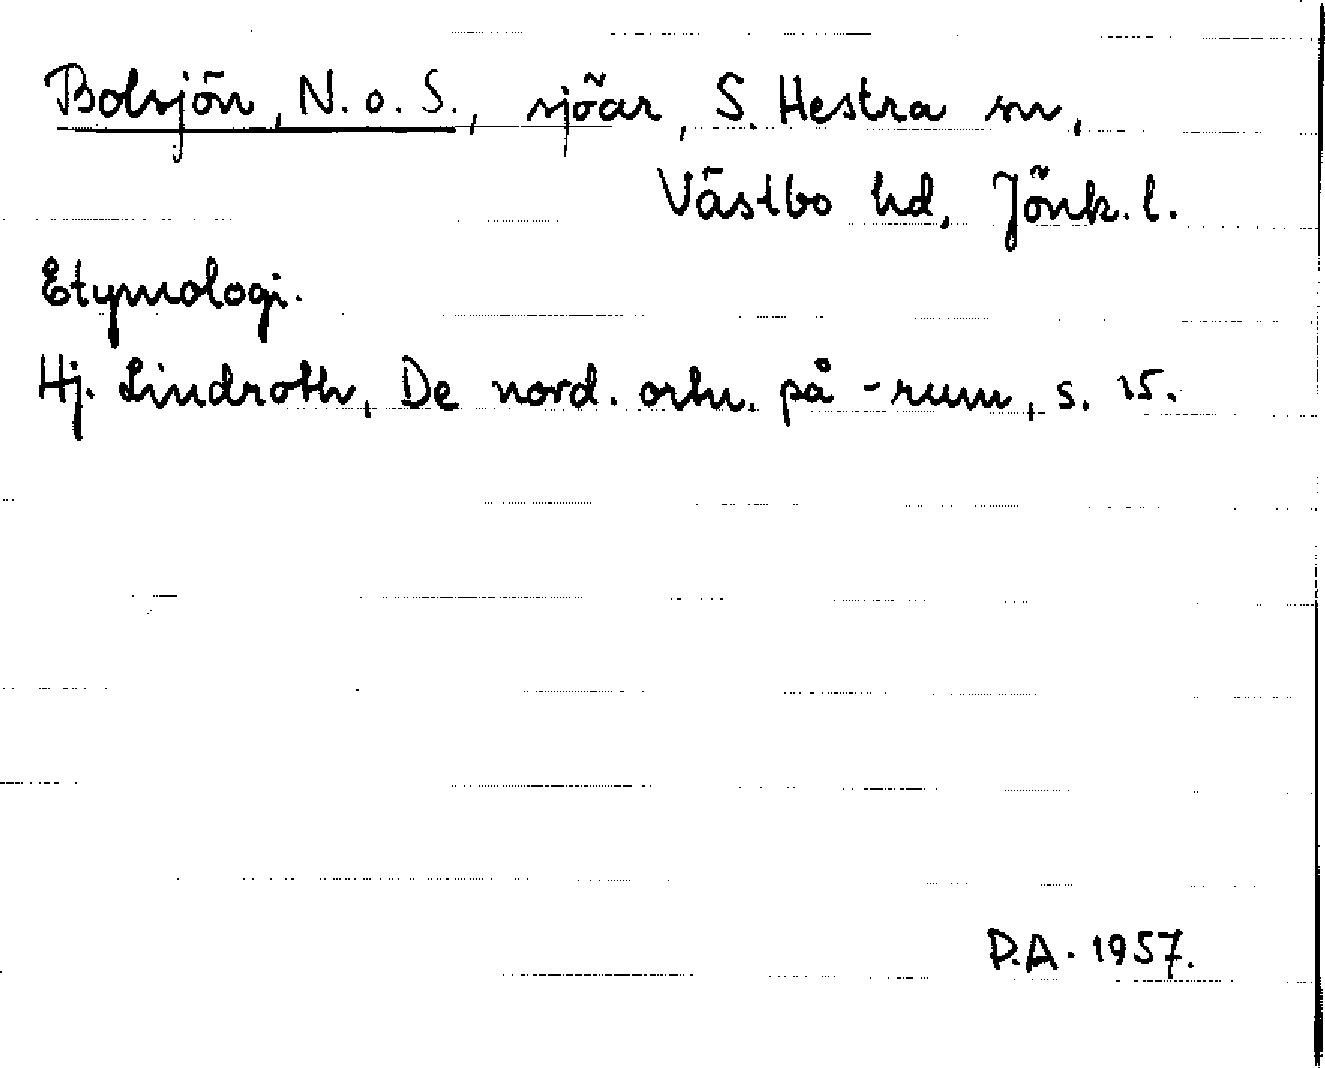 Bolsjön, N. o. S., sjöar, S. Hestra sn,
Västbo hd, Jönk. l.
Etymologi.
Hj. Lindroth, De nord. ortn. på -rum, s. 15.
D.A. 1957.